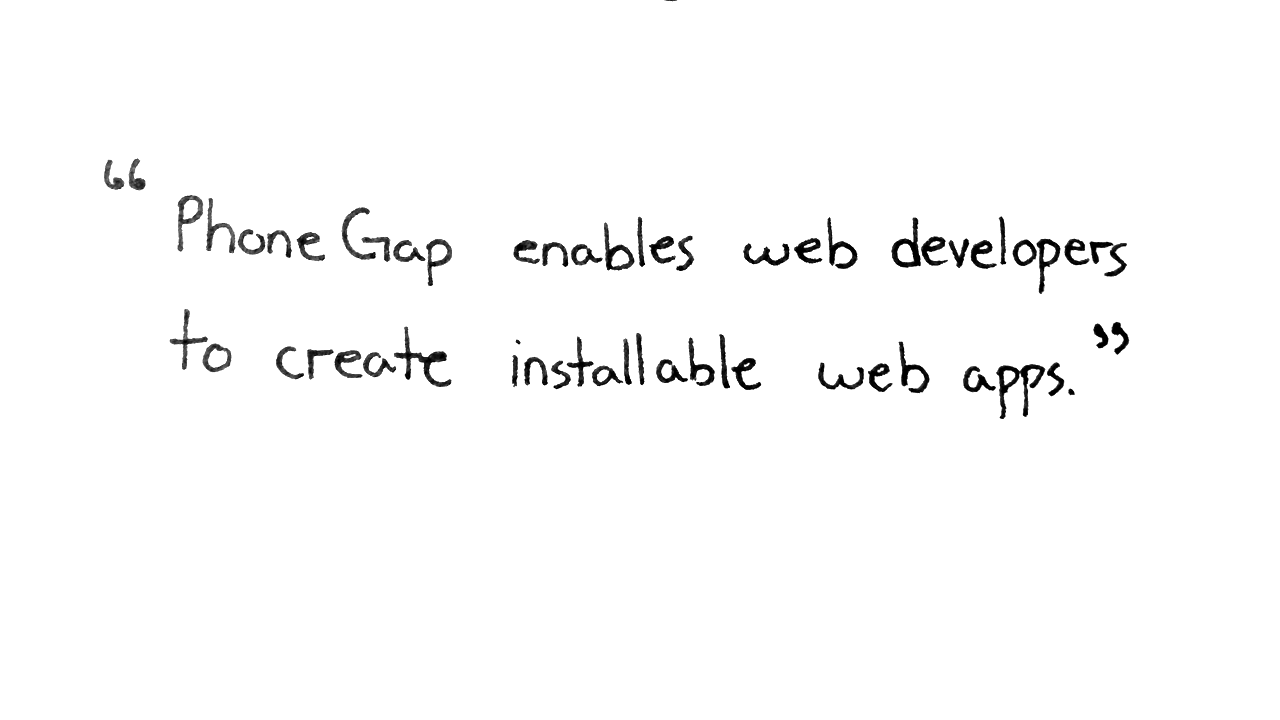 “PhoneGap enables web developers
to create installable web apps.”